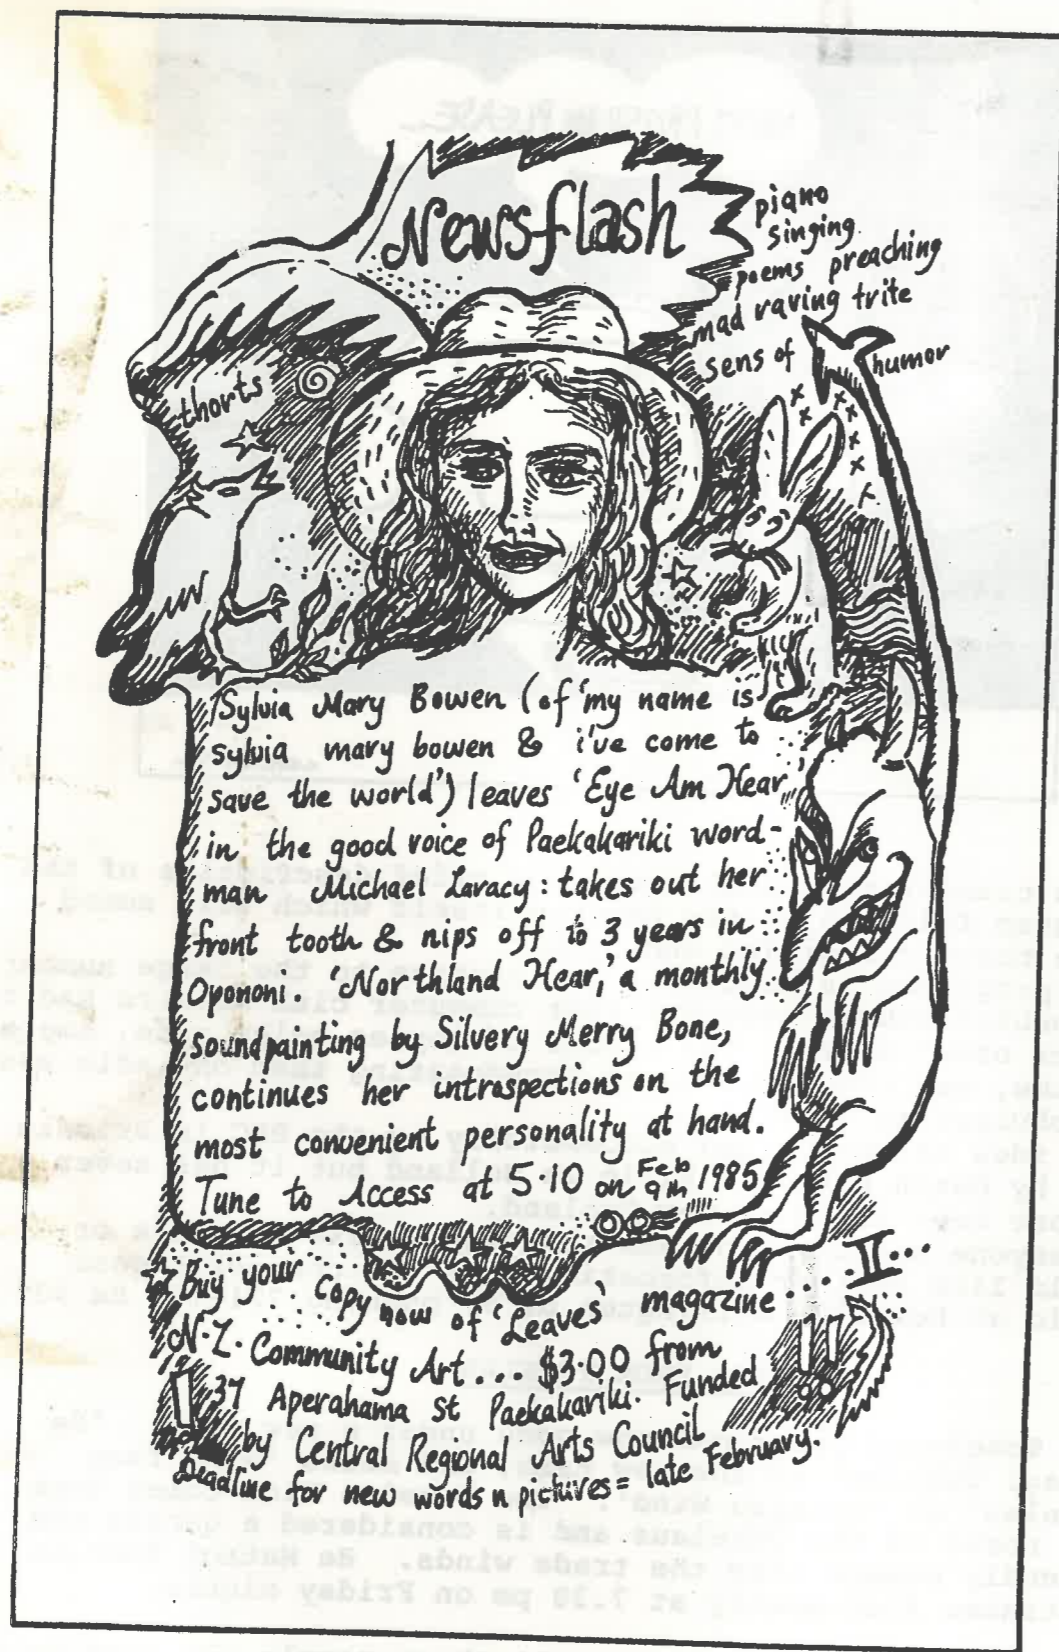 Newsflash
piano
singing
poems preaching
mad raving trite
sens of humor
thorts
Sylvia Mary Bowen (of 'my name is
sylvia mary bowen & i've come to
save the world') leaves 'Eye Am Hear'
in the good voice of Paekakariki word-
man Michael Laracy: takes out her
front tooth & nips off to 3 years in
Opononi. 'Northland Hear,' a monthly
soundpainting by Silvery Merry Bone,
continues her introspections on the
most convenient personality at hand.
Tune to Access at 5·10 on Feb 9th 1985
Buy your copy now of 'Leaves' magazine...II...
N·Z· Community Art... $3·00 from
37 Aperahama St Paekakariki. Funded
by Central Regional Arts Council
Deadline for new words n pictures = late February.